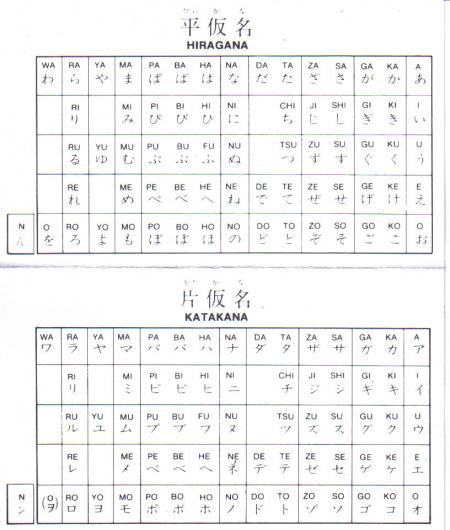 ひらがな
平仮名
HIRAGANA
WA RA YA MA PA BA HA NA DA TA ZA SA GA KA A
わ ら や ま ぱ ば は な だ た ざ さ が か あ
RI MI PI BI HI NI CHI JI SHI GI KI I
り み ぴ び ひ に ち じ し ぎ き い
RU YU MU PU BU FU NU TSU ZU SU GU KU U
る ゆ む ぷ ぶ ふ ぬ つ ず す ぐ く う
RE ME PE BE HE NE DE TE ZE SE GE KE E
れ め ぺ べ へ ね で て ぜ せ げ け え
N O RO YO MO PO BO HO NO DO TO ZO SO GO KO O
ん を ろ よ も ぽ ぼ ほ の ど と ぞ そ ご こ お
かたかな
片仮名
KATAKANA
WA RA YA MA PA BA HA NA DA TA ZA SA GA KA A
ワ ラ ヤ マ パ バ ハ ナ ダ タ ザ サ ガ カ ア
RI MI PI BI HI NI CHI JI SHI GI KI I
リ ミ ピ ビ ヒ ニ チ ジ シ ギ キ イ
RU YU MU PU BU FU NU TSU ZU SU GU KU U
ル ユ ム プ ブ フ ヌ ツ ズ ス グ ク ウ
RE ME PE BE HE NE DE TE ZE SE GE KE E
レ メ ペ ベ ヘ ネ デ テ ゼ セ ゲ ケ エ
N O RO YO MO PO BO HO NO DO TO ZO SO GO KO O
ン (ヲ) ロ ヨ モ ポ ボ ホ ノ ド ト ゾ ソ ゴ コ オ